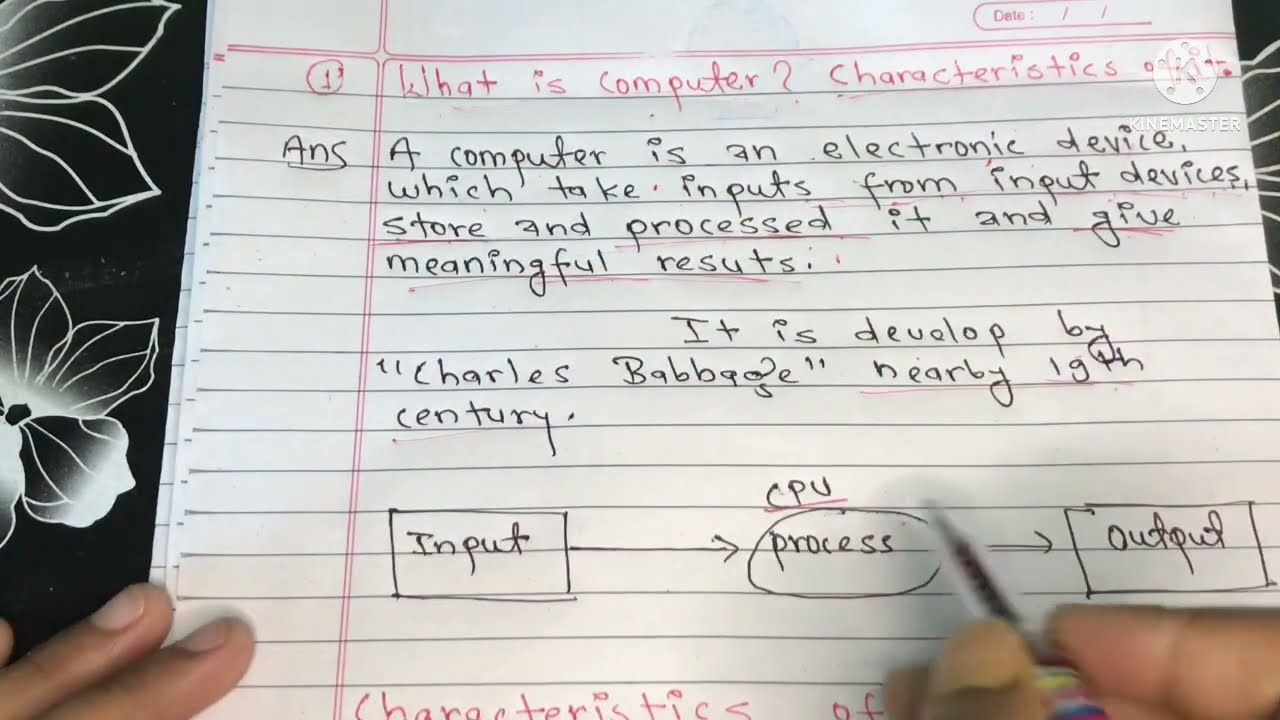 Date : / /
KINEMASTER
① What is computer? Characteristics of it.
Ans A computer is an electronic device,
which take inputs from input devices,
store and processed it and give
meaningful resuts.
It is develop by
"Charles Babbage" nearby 19th
century.
CPU
Input process output
Characteristics of